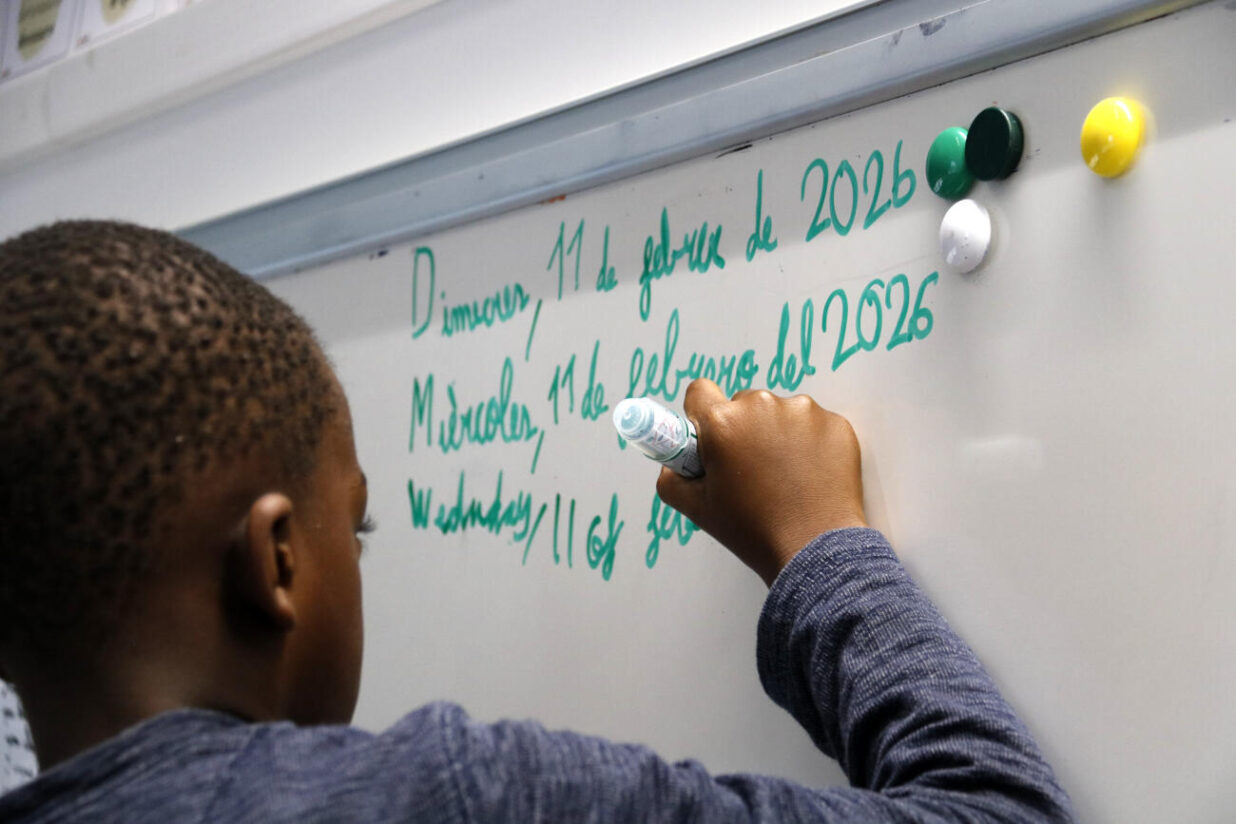 Dimecres, 11 de febrer de 2026
Miércoles, 11 de febrero del 2026
Wednsday, 11 of feb